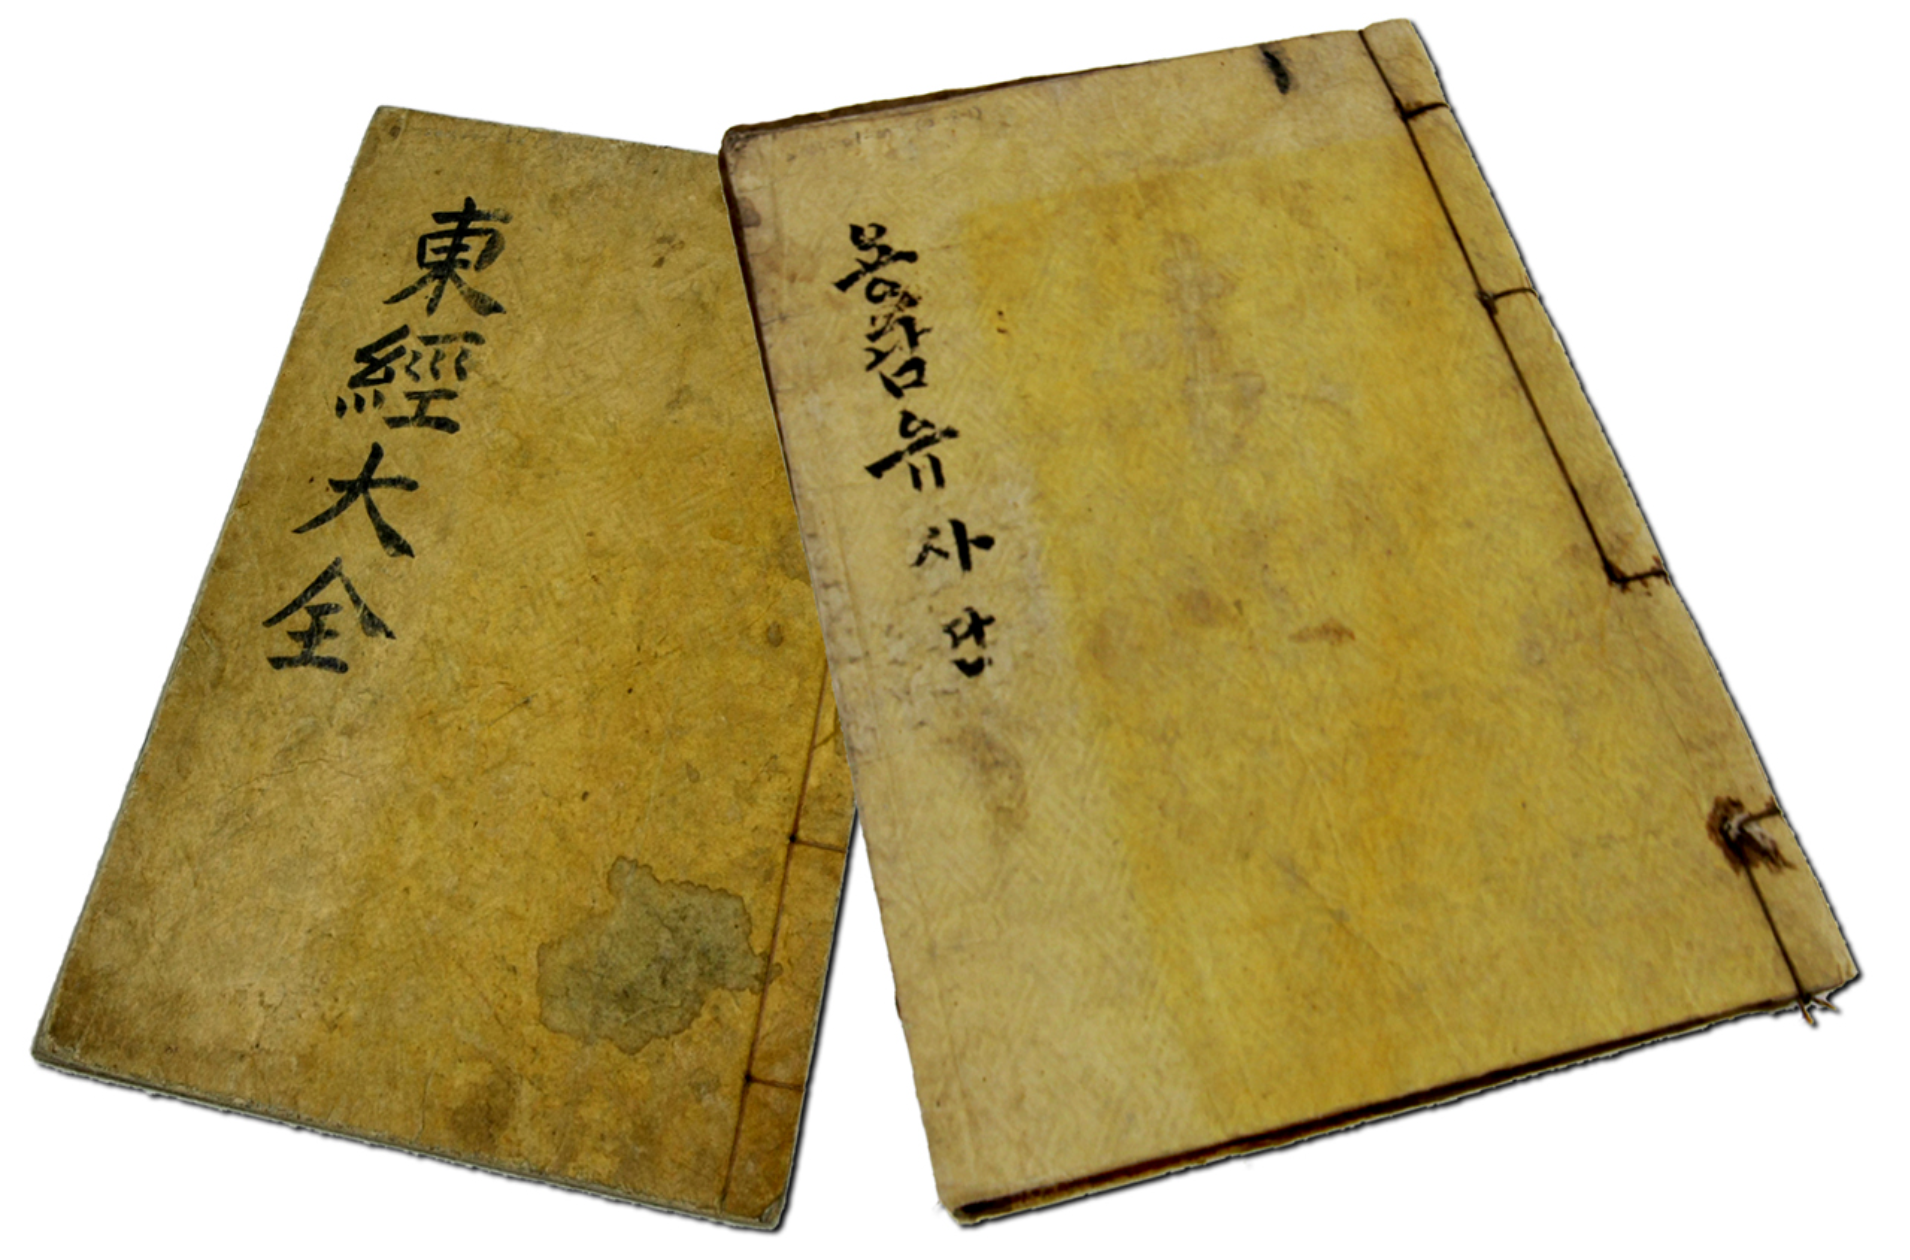 東經大全
용담유사 단